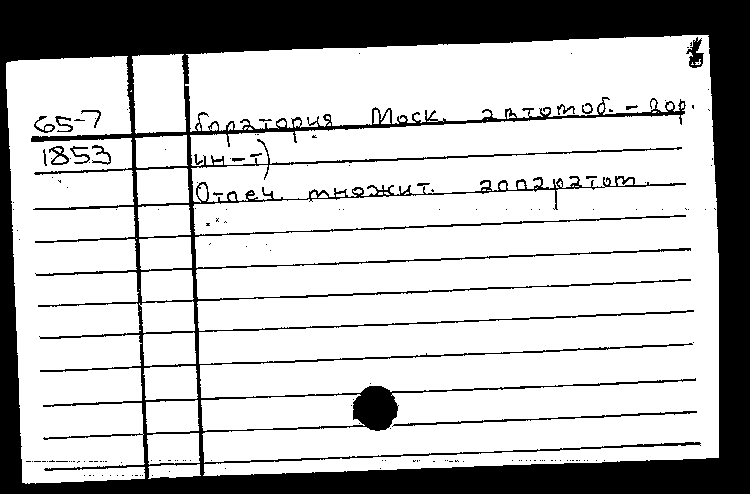 65-7 боратория Моск. автомоб.-дор.
1853 ин-т)
Отпеч. множит. аппаратом.